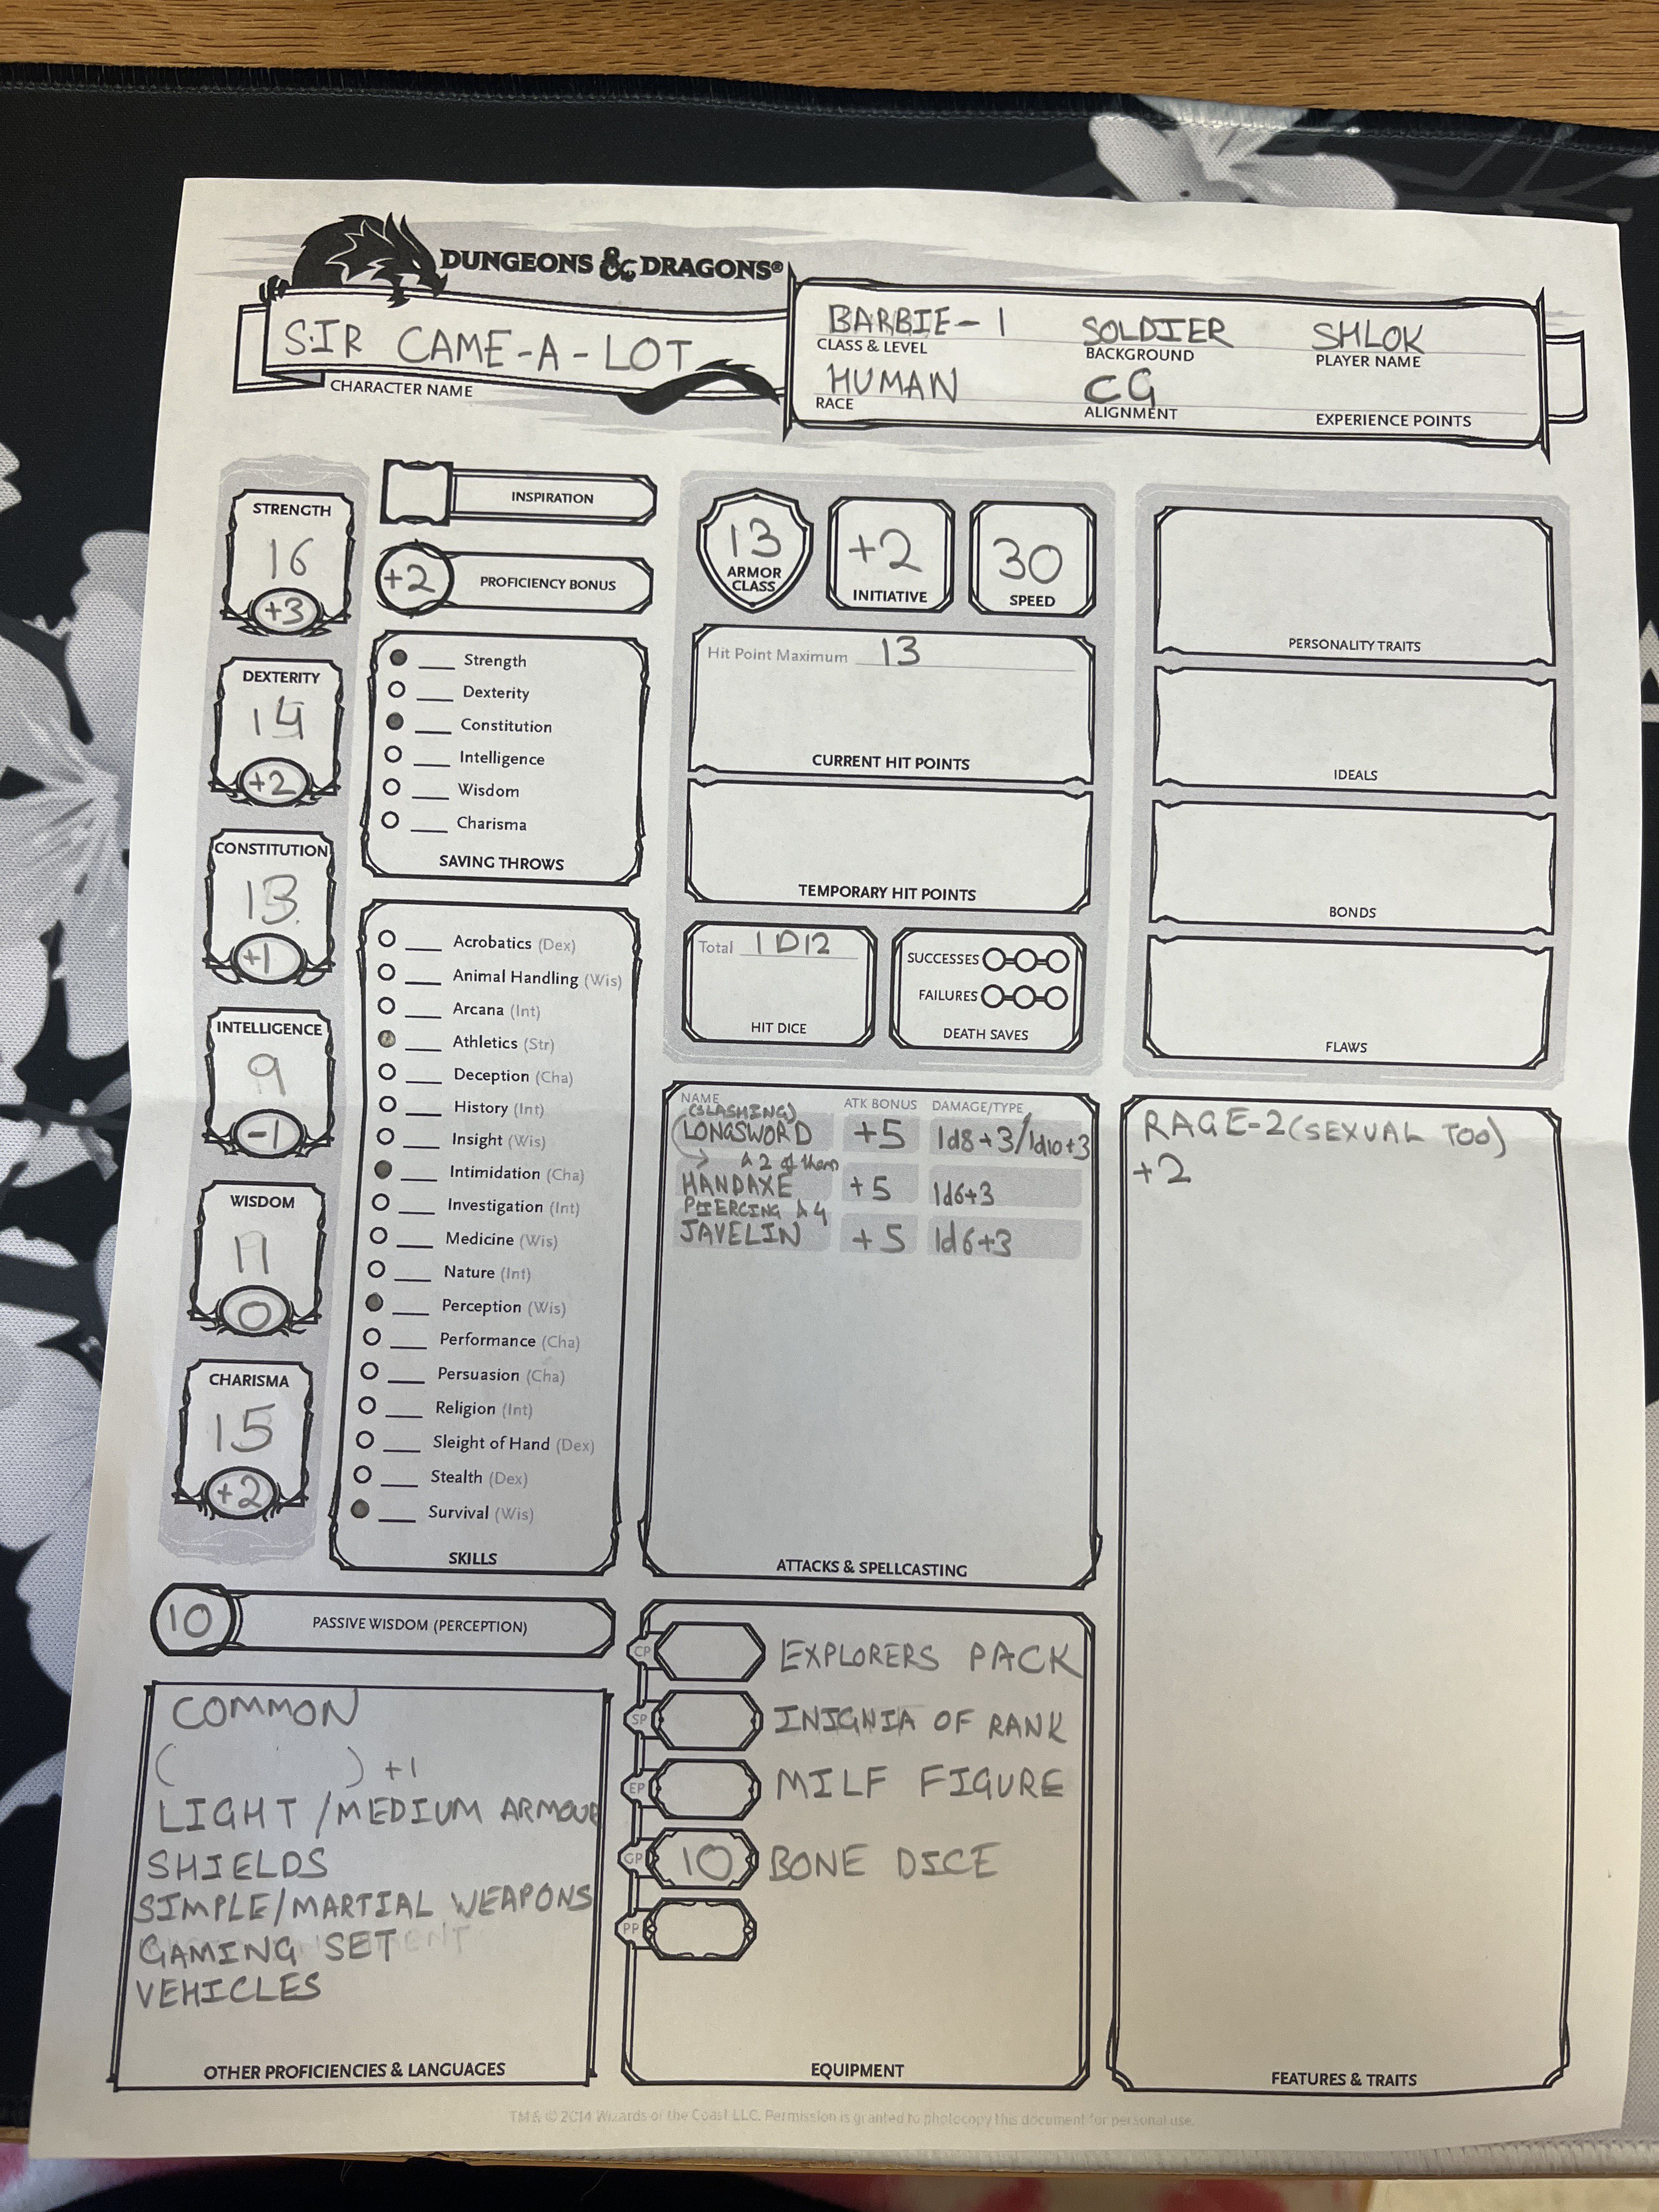 DUNGEONS & DRAGONS®
SIR CAME-A-LOT
CHARACTER NAME
BARBIE-1 SOLDIER SHLOK
CLASS & LEVEL BACKGROUND PLAYER NAME
HUMAN CG
RACE ALIGNMENT EXPERIENCE POINTS
STRENGTH
16
+3
DEXTERITY
14
+2
CONSTITUTION
13
+1
INTELLIGENCE
9
-1
WISDOM
11
0
CHARISMA
15
+2
INSPIRATION
+2 PROFICIENCY BONUS
Strength
Dexterity
Constitution
Intelligence
Wisdom
Charisma
SAVING THROWS
Acrobatics (Dex)
Animal Handling (Wis)
Arcana (Int)
Athletics (Str)
Deception (Cha)
History (Int)
Insight (Wis)
Intimidation (Cha)
Investigation (Int)
Medicine (Wis)
Nature (Int)
Perception (Wis)
Performance (Cha)
Persuasion (Cha)
Religion (Int)
Sleight of Hand (Dex)
Stealth (Dex)
Survival (Wis)
SKILLS
10 PASSIVE WISDOM (PERCEPTION)
COMMON
( ) +1
LIGHT/MEDIUM ARMOUR
SHIELDS
SIMPLE/MARTIAL WEAPONS
GAMING SET
VEHICLES
OTHER PROFICIENCIES & LANGUAGES
13
ARMOR
CLASS
+2
INITIATIVE
30
SPEED
Hit Point Maximum 13
CURRENT HIT POINTS
TEMPORARY HIT POINTS
Total 1D12
HIT DICE
SUCCESSES
FAILURES
DEATH SAVES
NAME ATK BONUS DAMAGE/TYPE
(SLASHING)
LONGSWORD +5 1d8+3/1d10+3
2 of them
HANDAXE +5 1d6+3
PIERCING 4
JAVELIN +5 1d6+3
ATTACKS & SPELLCASTING
CP EXPLORERS PACK
SP INIGNIA OF RANK
EP MILF FIGURE
GP 10 BONE DICE
PP
EQUIPMENT
PERSONALITY TRAITS
IDEALS
BONDS
FLAWS
RAGE-2 (SEXUAL TOO)
+2
FEATURES & TRAITS
TM & © 2014 Wizards of the Coast LLC. Permission is granted to photocopy this document for personal use.